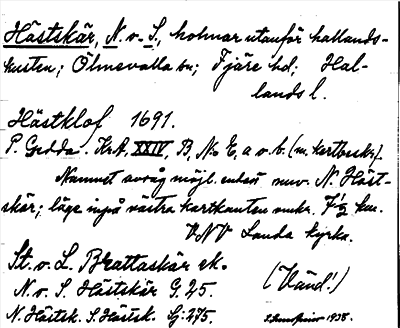 Hästskär, N. o. S., holmar utanför hallands-
kusten; Ölmevalla sn; Fjäre hd; Hal-
lands l.
Hästklof 1691.
P. Gedda. KrA, XXIV, B, No E, a o. b. (m. kartbeskr.).
Namnet avsåg möjl. endast nuv. N. Häst-
skär; läge inpå västra kartkanten omkr. 7½ km.
VNV Landa kyrka.
St. o. L. Brattaskär ek.
N. o. S. Hästskär G. 25.
(Händ.)
N. Hästsk. S. Hästsk. Gj: 275.
1938.